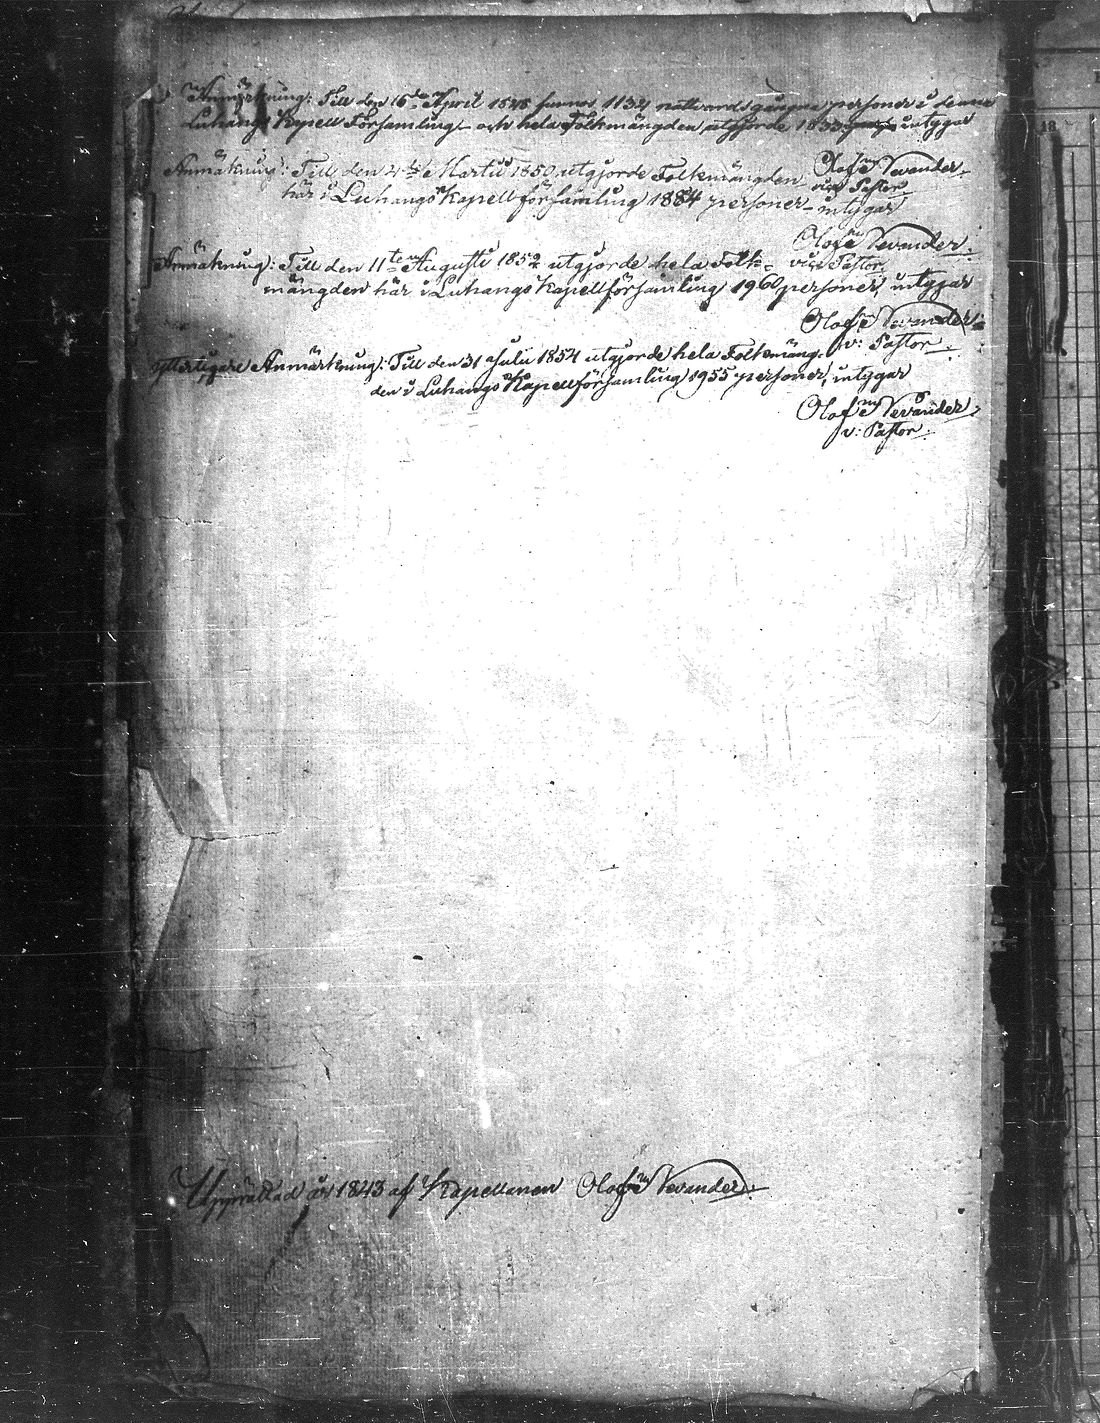 Anmärkning: Till den 16de April 1848 funnos 1134 nattvardsgångna personer i denna
Luhangs Kapell Församling och hela Folkmängden utgjorde 1833 intygar
Olof Nevander
vice Pastor
Anmäkning: Till den 4de Martii 1850 utgjorde Folkmängden
här i Luhangs Kapellförsamling 1884 personer intygar
Olof Nevander
vice Pastor
Anmäkning: Till den 11te Augusti 1852 utgjorde hela Folk-
mängden här i Luhangs Kapellförsamling 1960 personer, intygar
Olof Nevander
v: Pastor
ytterligare Anmärkning: Till den 31 Julii 1854 utgjorde hela Folkmäng-
den i Luhangs Kapellförsamling 1955 personer, intygar
Olof Nevander
v: Pastor
Upprättad år 1843 af Kapellanen Olof Nevander